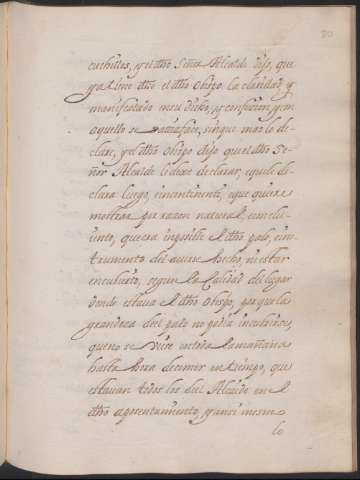 80
cuchillos, y el dho Señor Alcalde dijo, que
ya tiene dho el dho Obispo la claridad, y
manifestado en su dicho, y confesion, y en
aquello se satisface, sin que mas lo de-
clare, y el dho Obispo dijo que el dho Se-
ñor Alcalde le dexe declarar, e que le de-
clara luego, incontinenti, e que quiere
mostrar por razon natural, concluí-
ento, que era imposible el dho palo, ins-
trumento del auerse hecho, ni estar
encubierto, segun la Calidad del lugar
donde estaua el dho Obispo, porque la
grandeza del palo no podia incubrirse,
que no se viese en toda la mañana
hasta hora de comer en tiempo, que
estauan todos los del Alcaide en el
dho aposentamiento, y ansi mesmo
lo